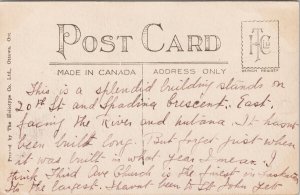 POST CARD
MADE IN CANADA
ADDRESS ONLY
This is a splendid building stands on
20th St and Spadina Crescent. East.
facing the River and nutana. It hasnt
been built long. But forget just when
it was built in what year I mean. I
think Third Ave Church is the finest in Saskatoon
Its the largest. I havent been to St John yet